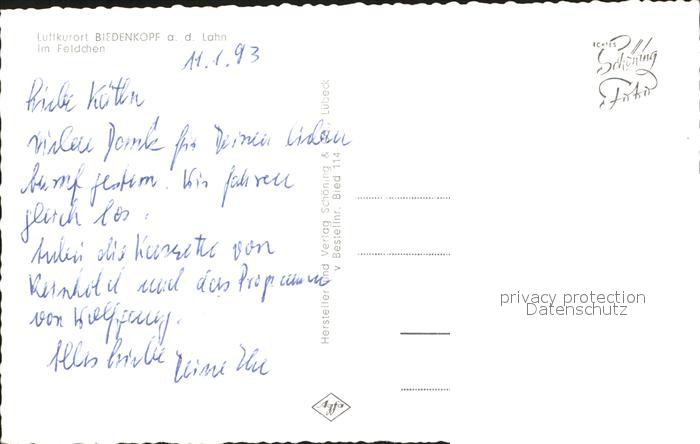 Luftkurort BIEDENKOPF a. d. Lahn
Im Feldchen
11.1.93
Liebe Käthe
vielen Dank für Deinen lieben
Anruf gestern. Wir fahren
gleich los.
Anbei die Kassette von
Reinhold und das Programm
von Wolfgang.
Alles Liebe Deine
Hersteller und Verlag Schöning & Lübeck
v Bestellnr. Bied 114
ECHTES
Schöning
Foto
Agfa
privacy protection
Datenschutz